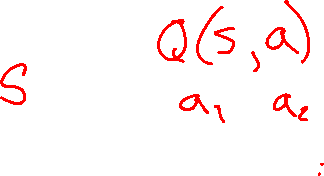 Q(s,a)
S a₁ a₂
: